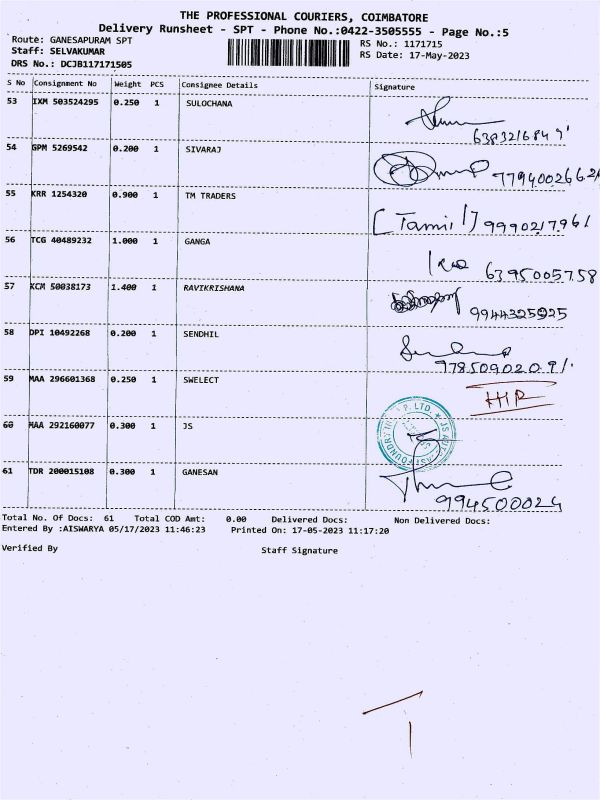 THE PROFESSIONAL COURIERS, COIMBATORE
Delivery Runsheet - SPT - Phone No.:0422-3505555 - Page No.:5
Route: GANESAPURAM SPT
RS No.: 1171715
Staff: SELVAKUMAR
RS Date: 17-May-2023
DRS No.: DCJB117171505
S No Consignment No Weight PCS Consignee Details Signature
53 IXM 503524295 0.250 1 SULOCHANA
54 GPM 5269542 0.200 1 SIVARAJ
55 KRR 1254320 0.900 1 TM TRADERS
[Tamil] 9990217961
56 TCG 40489232 1.000 1 GANGA
6395005758
57 KCM 50038173 1.400 1 RAVIKRISHANA
9944325925
58 DPI 10492268 0.200 1 SENDHIL
59 MAA 296601368 0.250 1 SWELECT
60 MAA 292160077 0.300 1 JS
61 TDR 200015108 0.300 1 GANESAN
994500024
Total No. Of Docs: 61 Total COD Amt: 0.00 Delivered Docs: Non Delivered Docs:
Entered By :AISWARYA 05/17/2023 11:46:23 Printed On: 17-05-2023 11:17:20
Verified By Staff Signature